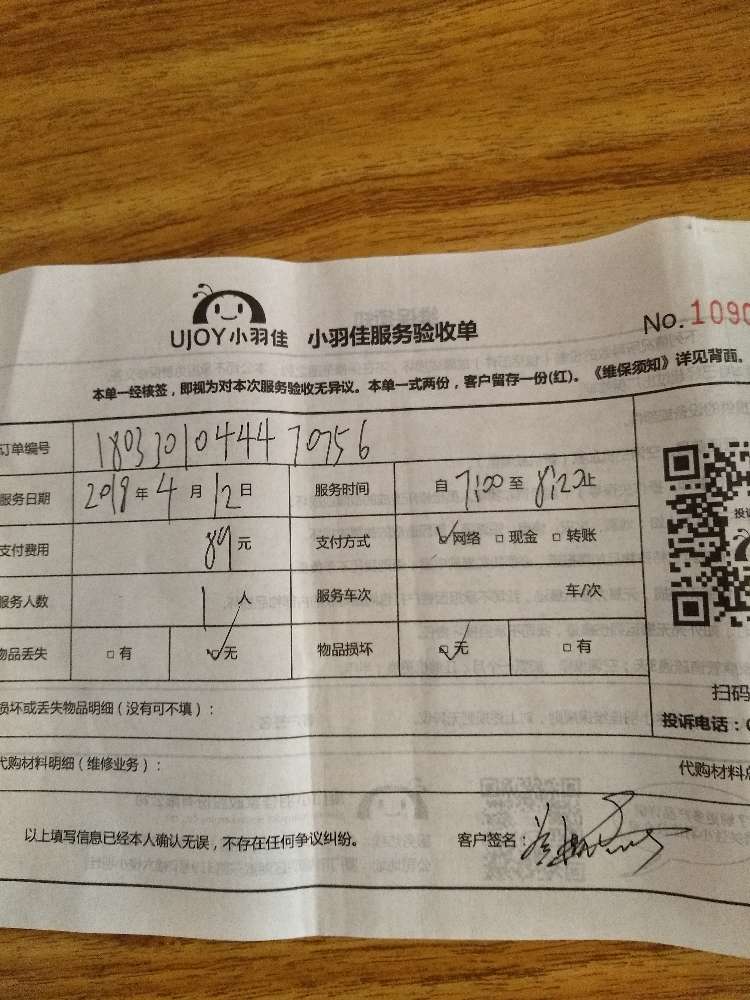 UJOY小羽佳 小羽佳服务验收单 No.1090
本单一经核签,即视为对本次服务验收无异议。本单一式两份,客户留存一份(红)。《维保须知》详见背面。
订单编号 18033010444470756
服务日期 2018年4月12日 服务时间 自7:00至8:20止
支付费用 89元 支付方式 网络 现金 转账
服务人数 1人 服务车次 车/次
物品丢失 有 无 物品损坏 无 有
损坏或丢失物品明细(没有可不填):
扫码
投诉电话:
代购材料明细(维修业务): 代购材料总
以上填写信息已经本人确认无误,不存在任何争议纠纷。 客户签名: